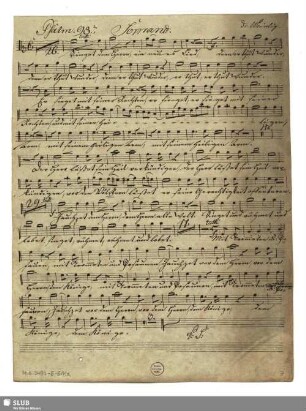 Psalm 98.
Singet dem Herrn ein neues Lied denn er thut Wunder
denn er thut Wunder, denn er thut, er thut Wunder.
Er sieget mit seiner Rechten, er sieget, er sieget mit seiner
Rechten und mit seinem heiligen
Arm, mit seinem heiligen Arm, mit seinem heiligen Arm.
Der Herr lässet sein Heil verkündigen, der Herr lässet sein Heil ver-
kündigen, vor den Völkern lässet er seine Gerechtigkeit offenbaren.
Jauchzet dem Herrn, dem Herrn alle Welt. Singet und rühmet und
lobet, singet, rühmet, rühmet und lobet. Mit Trometen und Po-
saunen, mit Trometen und Posaunen, Jauchzet vor dem Herrn, vor dem
Herrn dem Könige, mit Trometen und Posaunen, mit Trometen
Jauchzet vor dem Herrn, vor dem Herrn dem Könige, dem
Könige, dem Könige.